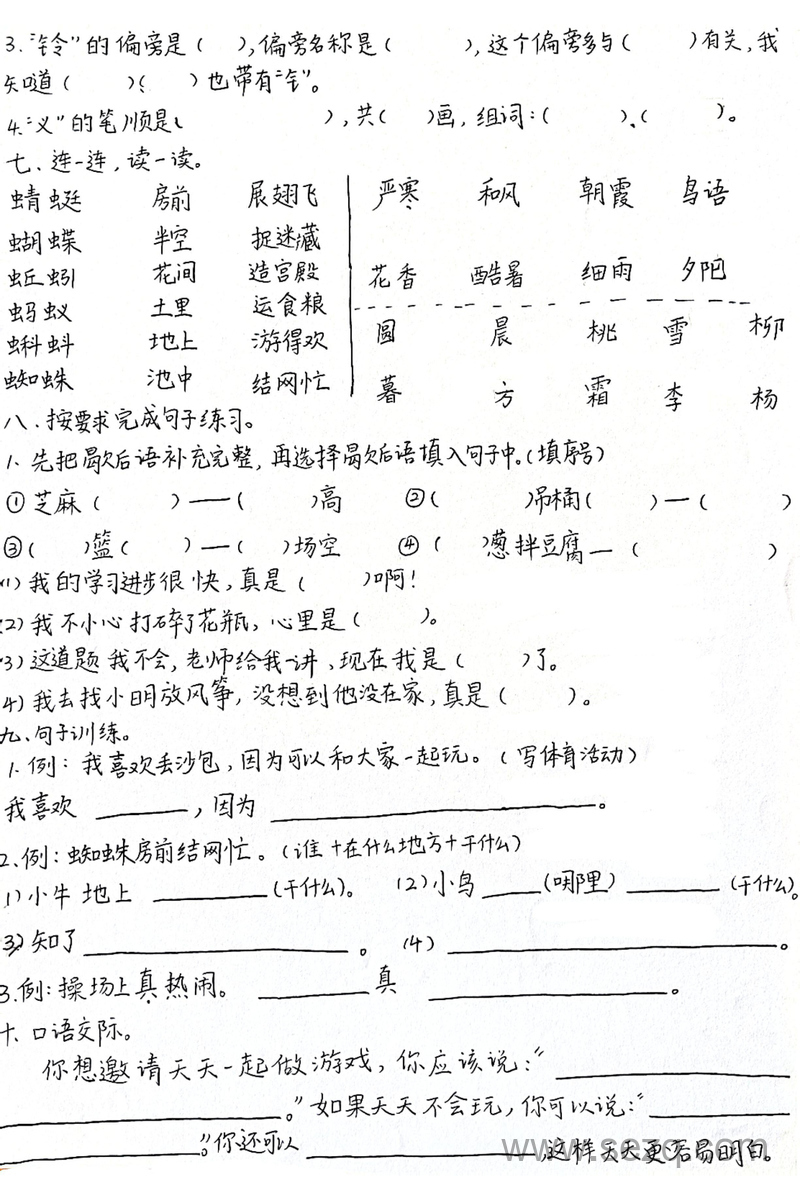 3.“铃”的偏旁是(  ),偏旁名称是(  ),这个偏旁多与(  )有关,我
知道(  )(  )也带有“钅”。
4.“义”的笔顺是(  ),共(  )画,组词:(  )、(  )。
七、连一连,读一读。
蜻蜓 房前 展翅飞
蝴蝶 半空 捉迷藏
蚯蚓 花间 造宫殿
蚂蚁 土里 运食粮
蝌蚪 地上 游得欢
蜘蛛 池中 结网忙
严寒 和风 朝霞 鸟语
花香 酷暑 细雨 夕阳
圆 晨 桃 雪 柳
暮 方 霜 李 杨
八、按要求完成句子练习。
1、先把歇后语补充完整,再选择歇后语填入句子中。(填序号)
①芝麻(  )——(  )高 ②(  )吊桶(  )—(  )
③(  )篮(  )—(  )场空 ④(  )葱拌豆腐—(  )
(1)我的学习进步很快,真是(  )啊!
(2)我不小心打碎了花瓶,心里是(  )。
(3)这道题我不会,老师给我一讲,现在我是(  )了。
(4)我去找小明放风筝,没想到他没在家,真是(  )。
九、句子训练。
1.例:我喜欢丢沙包,因为可以和大家一起玩。(写体育活动)
我喜欢 ______,因为 ____________。
2、例:蜘蛛房前结网忙。(谁+在什么地方+干什么)
(1)小牛地上 ______(干什么)。 (2)小鸟____(哪里)______(干什么)。
(3)知了____________。 (4)____________。
3.例:操场上真热闹。 ______真 ____________。
十、口语交际。
你想邀请天天一起做游戏,你应该说:“____________
____________。”如果天天不会玩,你可以说:“________
____________。”你还可以____________这样天天更容易明白。